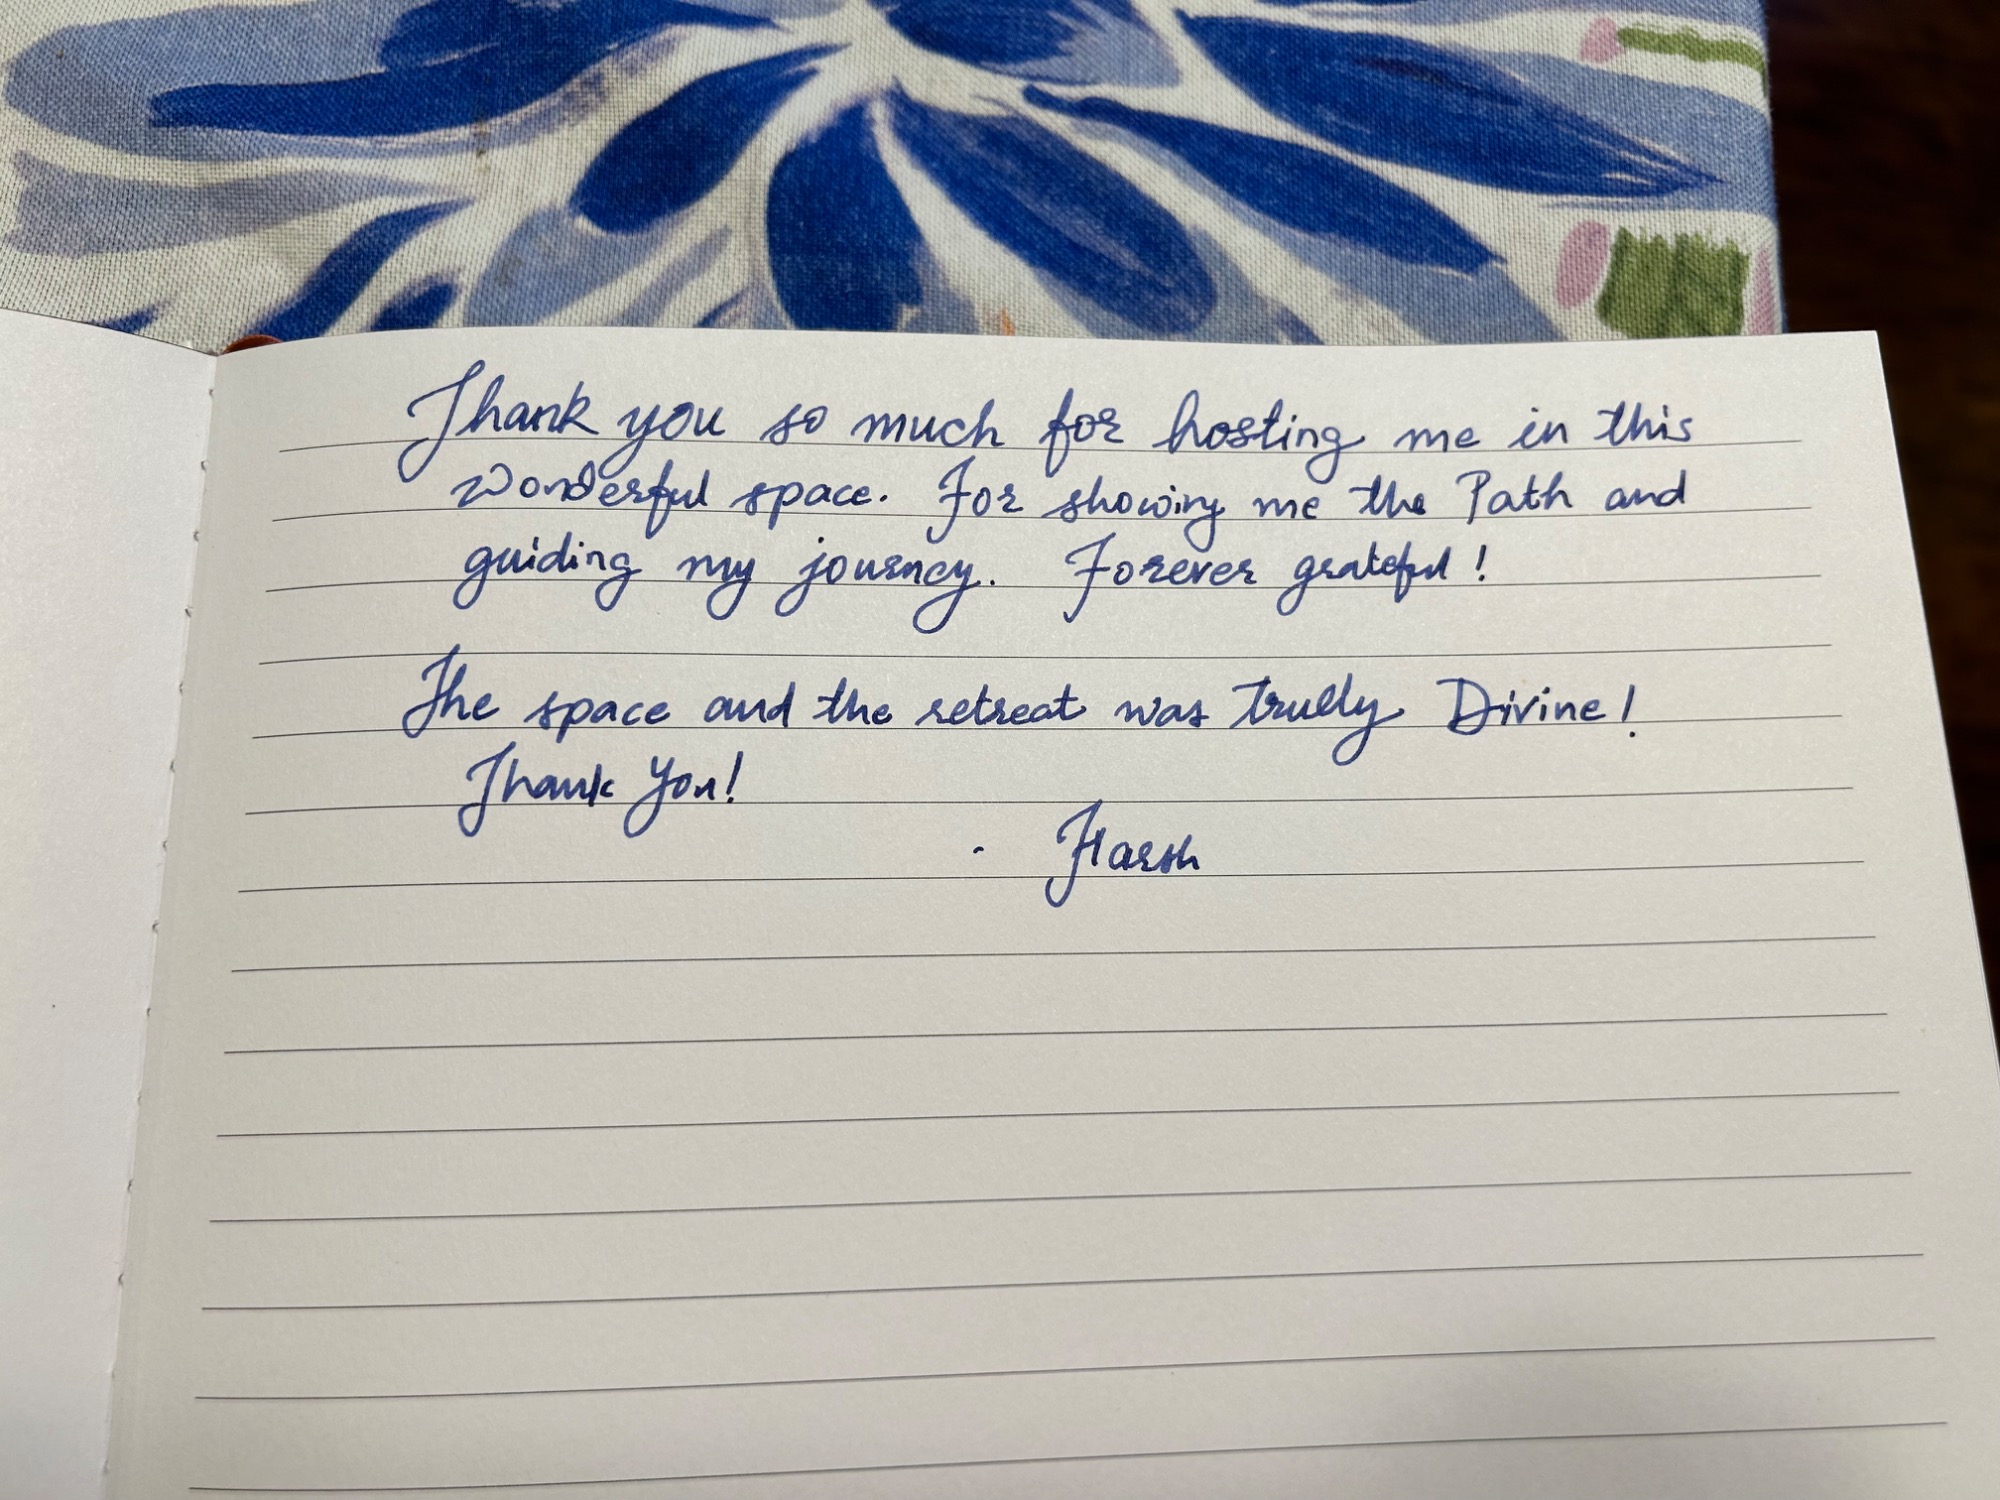 Thank you so much for hosting me in this
wonderful space. For showing me the Path and
guiding my journey. Forever grateful!
The space and the retreat was trully Divine!
Thank You!
- Harsh